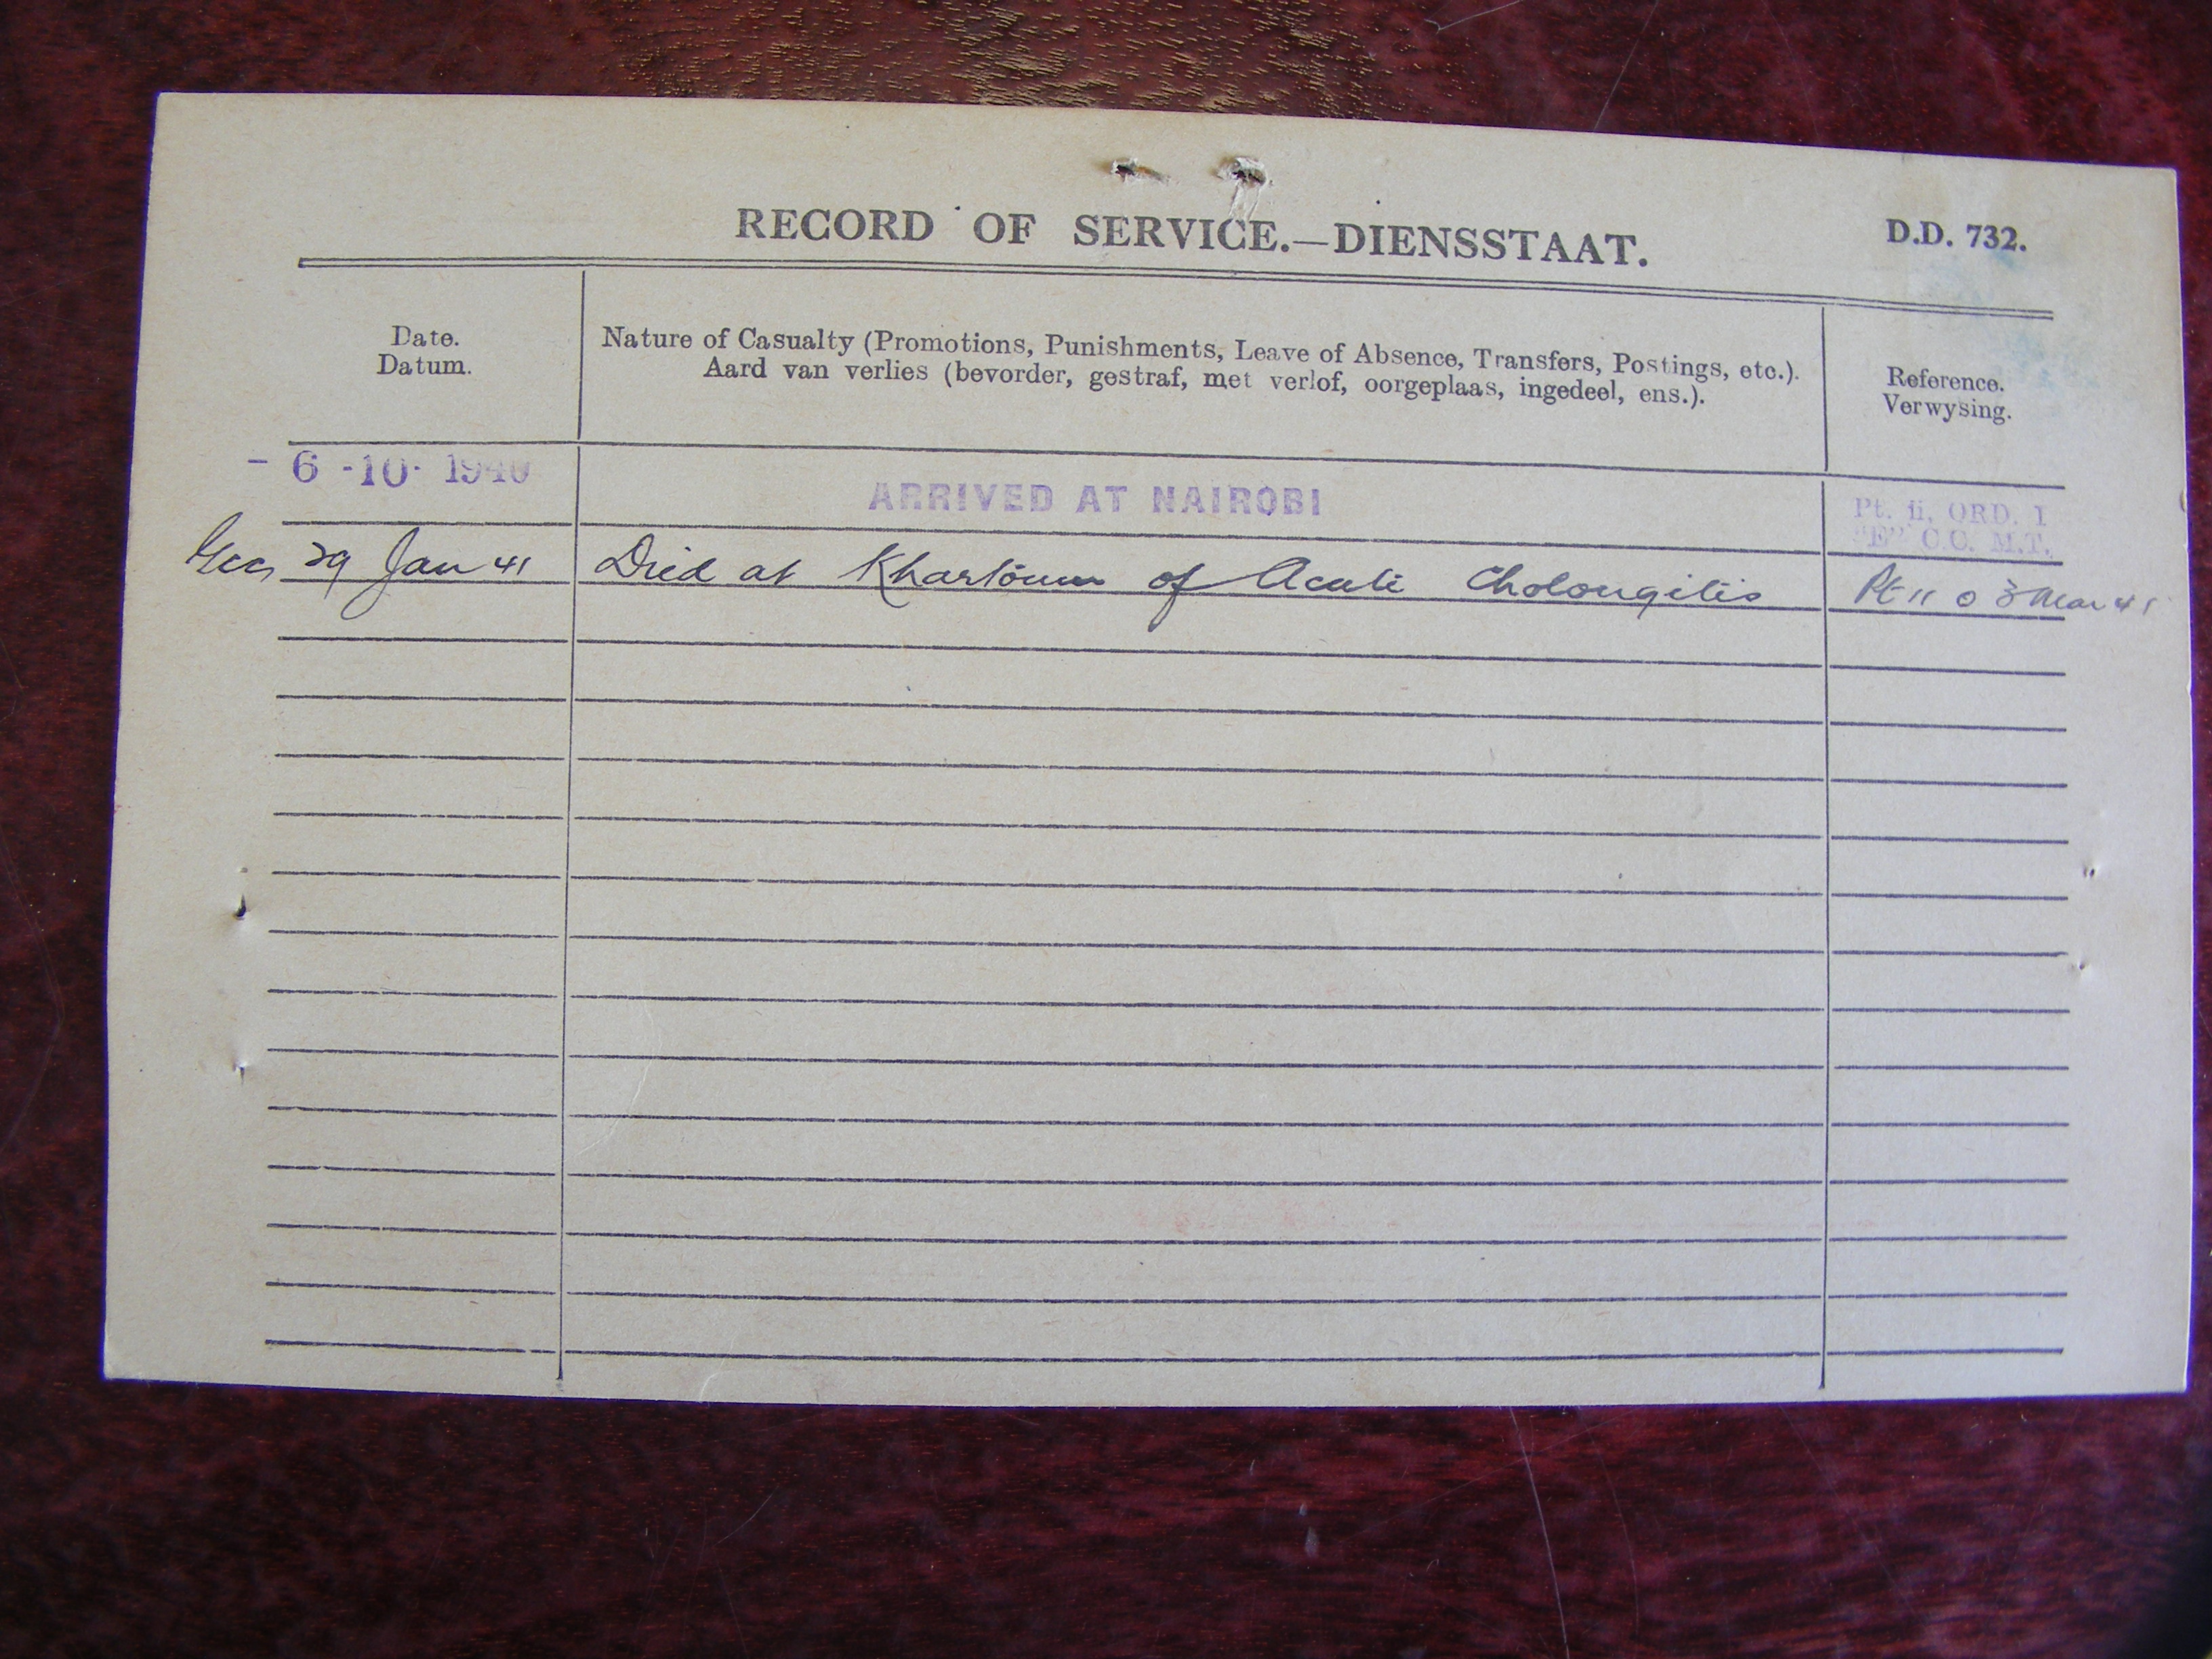 RECORD OF SERVICE.—DIENSSTAAT.
D.D. 732.
Date.
Datum.
Nature of Casualty (Promotions, Punishments, Leave of Absence, Transfers, Postings, etc.).
Aard van verlies (bevorder, gestraf, met verlof, oorgeplaas, ingedeel, ens.).
Reference.
Verwysing.
- 6 -10- 1940
ARRIVED AT NAIROBI
Pt. ii. ORD. 1
"E" C.C. M.T.
29 Jan 41
Died at Khartoum of Acute Cholongitis
Pt 11 0 3 Mar 41